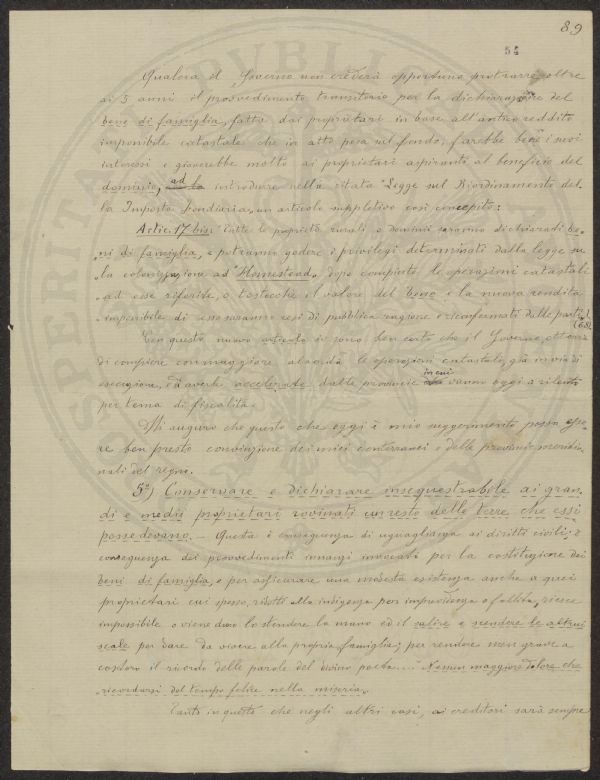 89
54
Qualora il Governo non crederà opportuno protrarre, oltre
ai 5 anni il provvedimento transitorio per la dichiarazione del
bene di famiglia, fatta dai proprietari in base all'antico reddito
imponibile catastale che in atto pesa sul fondo, farebbe bene i suoi
interessi e gioverebbe molto ai proprietari aspiranti al beneficio del
dominio, ad introdurre nella citata "Legge sul Riordinamento del-
la Imposta fondiaria, un articolo suppletivo così concepito:
Artic. 17 bis: "Tutte le proprietà rurali o dominii saranno dichiarati be-
ni di famiglia, e potranno godere i privilegi determinati dalla legge su
"la colonizzazione ad "Homestead, dopo compiute le operazioni catastali
"ad esse riferite, o tostochè il valore del bene e la nuova rendita
"imponibile di esso saranno resi di pubblica ragione e riconfermati dalle parti.
(68)
Con questo nuovo articolo io sono ben certo che il Governo, otterrà
di compiere con maggiore alacrità le operazioni catastali, già in via di
esecuzione, ed averle accelerate dalle provincie in cui vanno oggi a rilento
per tema di fiscalità.
Mi auguro che questo che oggi è mio suggerimento possa esse-
re ben presto convinzione dei miei conterranei e delle provincie meridio-
nali del regno.
5°) Conservare e dichiarare insequestrabile ai gran-
di e medii proprietari rovinati un resto delle terre che essi
possedevano. — Questa è conseguenza di uguaglianza ai diritti civili; è
conseguenza dei provvedimenti innanzi invocati per la costituzione dei
beni di famiglia, e per assicurare una modesta esistenza anche a quei
proprietari cui spesso, ridotti alla indigenza per imprevidenza o fallita, riesce
impossibile o viene duro lo stendere la mano ed il salire e scendere le altrui
scale per dare da vivere alla propria famiglia; per rendere men grave a
costoro il ricordo delle parole del divino poeta... "Nessun maggior dolore che
"ricordarsi del tempo felice nella miseria.
Tanto in questo che negli altri casi, ai creditori sarà sempre